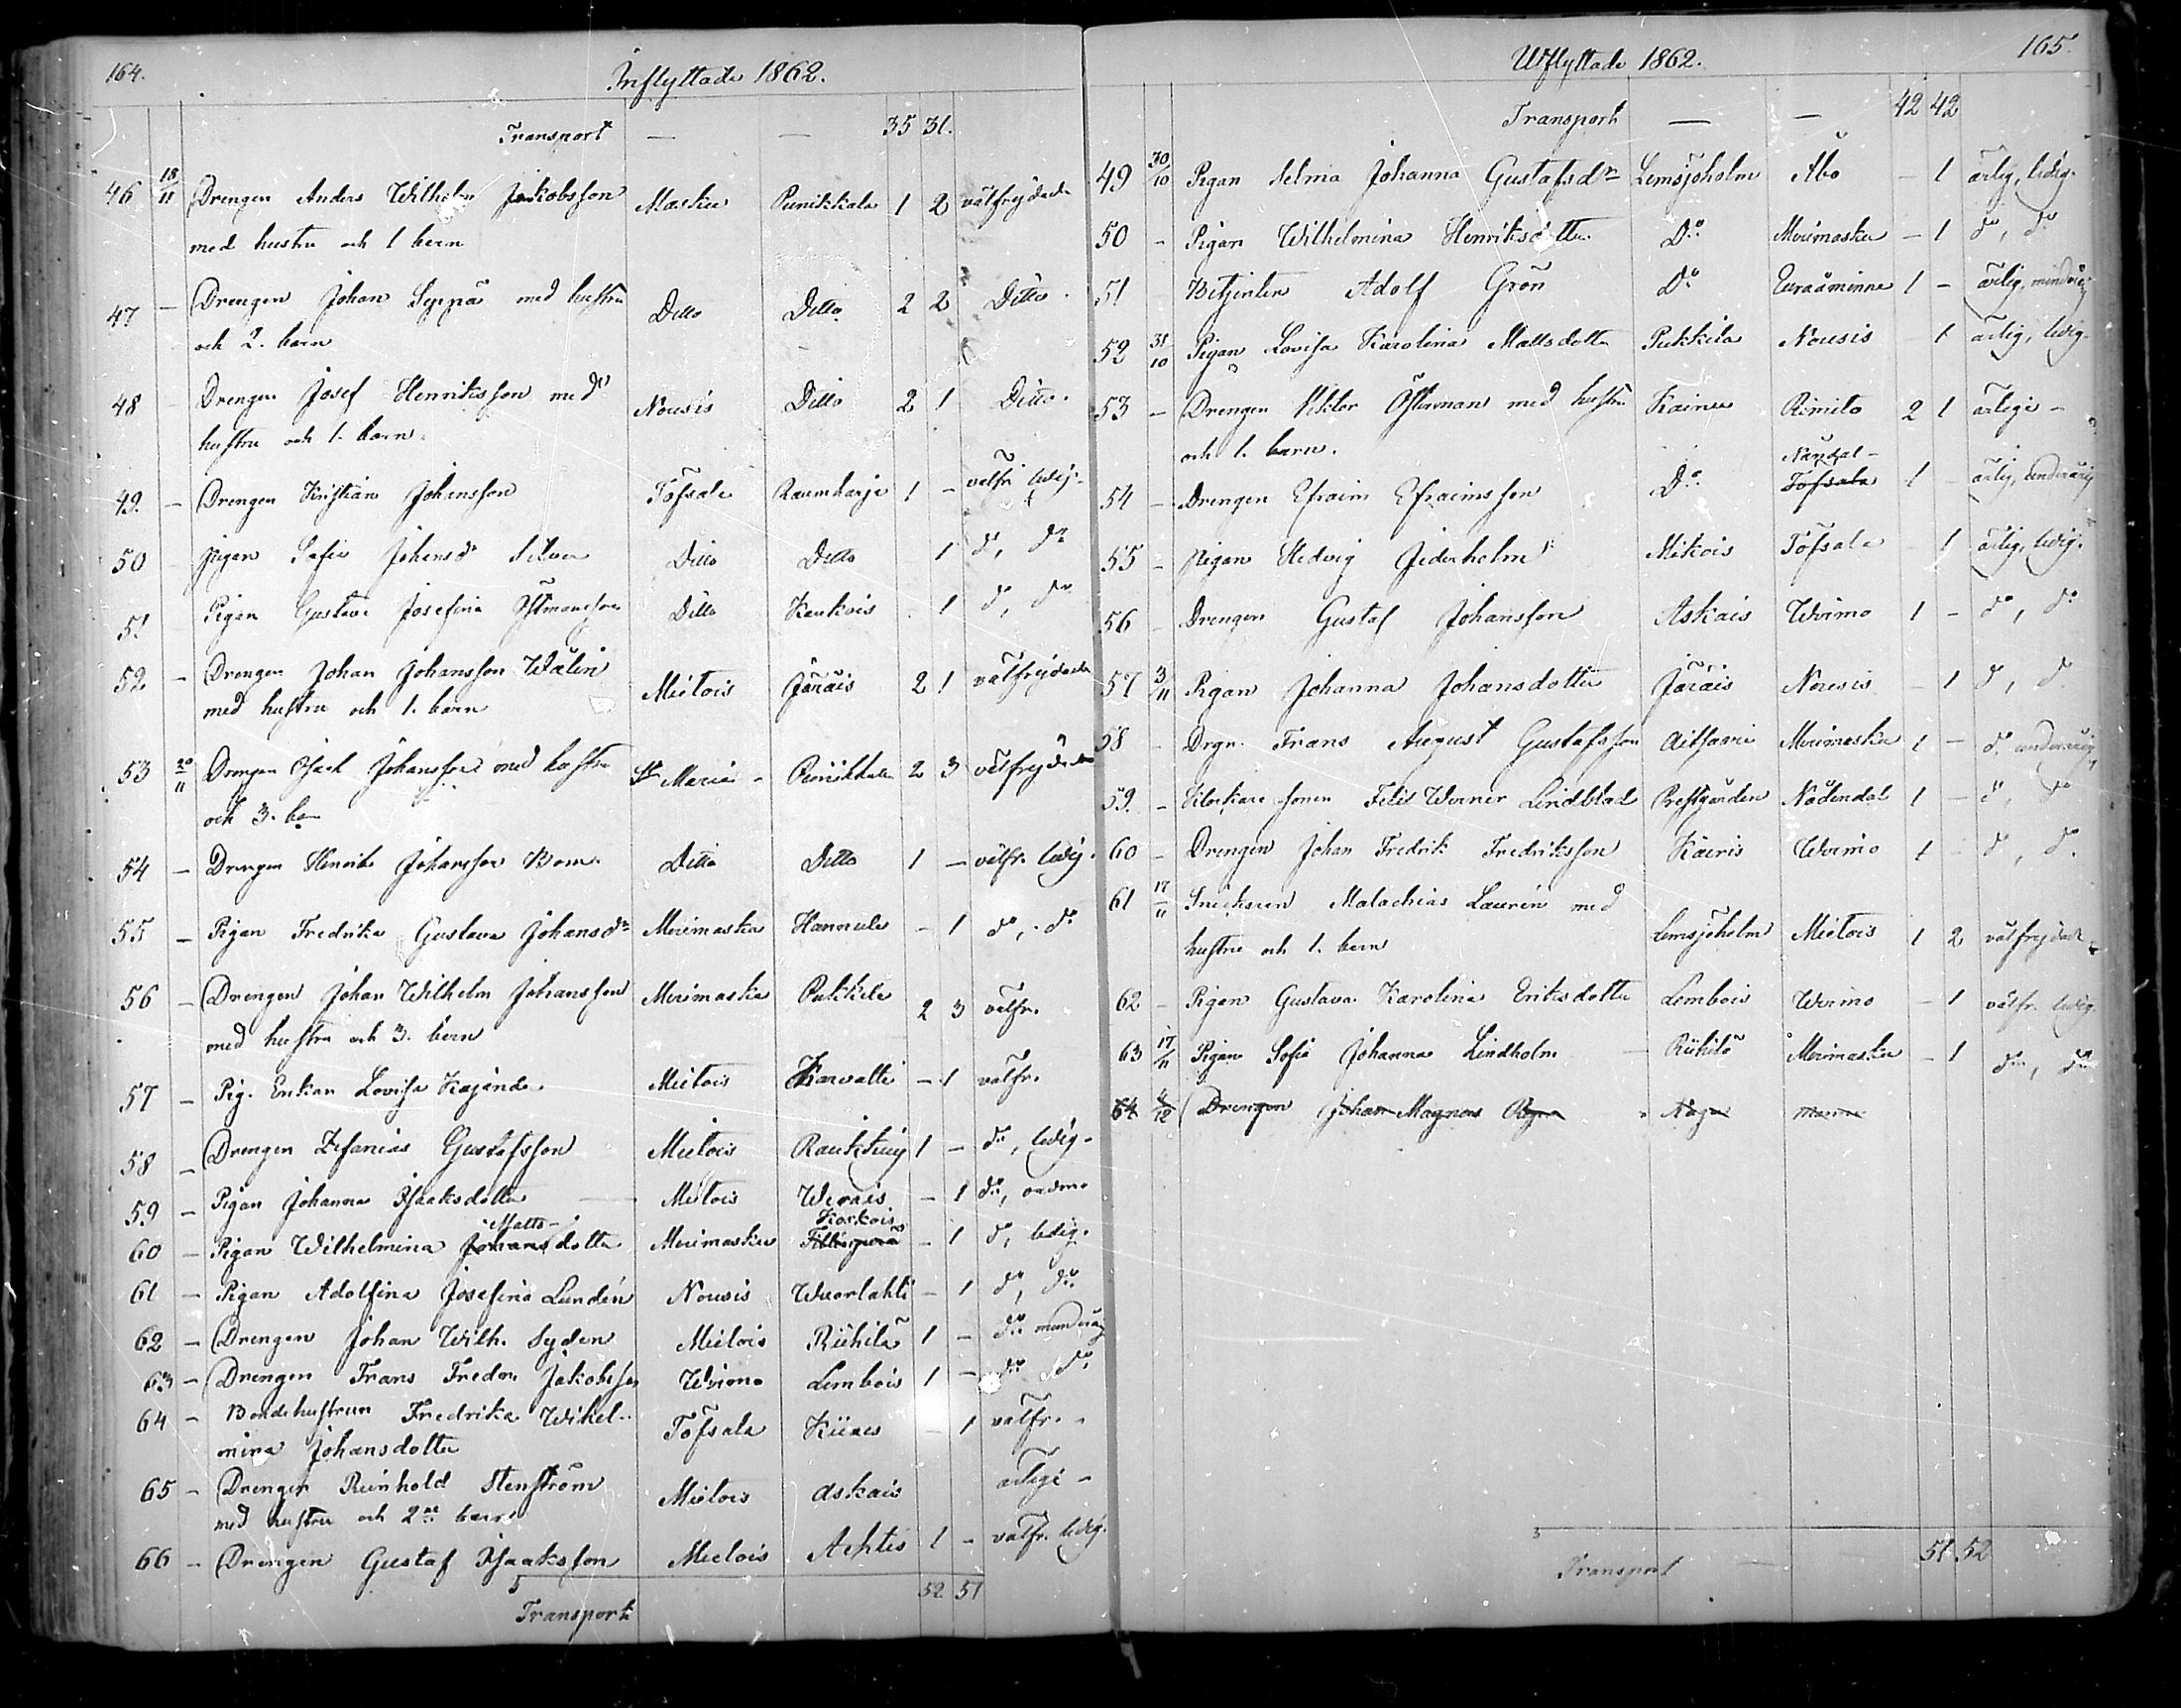 164.
Inflyttade 1862.
Transport — — 35 31.
46 18/11 Drengen Anders Wilhelm Jakobsson Masku Purnikkala 1 2 välfrejdade
med hustru och 1 barn
47 – Drengen Johan Seppä med hustru Ditto Ditto 2 2 Ditto.
och 2. barn
48 – Drengen Josef Henriksson med Nousis Ditto 2 1 Ditto.
hustru och 1. barn.
49. – Drengen Kristian Johansson Töfsala Raumkarja 1 – välfr ledig.
50 – Pigan Sofia Johansdr Silven Ditto Ditto 1 do, do
51 Pigan Gustava Josefina Östmansson Ditto Kaukois 1 do, do
52 – Drengen Johan Johansson Wälin Mietois Järäis 2 1 välfrejdade
med hustru och 1. barn
53 20/11 Drengen Isack Johansson med hustru St Marie Purnikkala 2 3 välfrejdade
och 3. ba
54 – Drengen Henrik Johansson Bom Ditto Ditto 1 – välfr. ledig.
55 – Pigan Fredrika Gustava Johansdr Merimasku Hannula – 1 do, do
56 – Drengen Johan Wilhelm Johansson Merimasku Pukkila 2 3 välfr.
med hustru och 3. barn
57 – Pig. Enkan Lovisa Kajander Mietois Karvatti – 1 välfr.
58 – Drengen Zefanias Gustafsson Mietois 1 – do, ledig.
59 – Pigan Johanna Isaksdotter Mietois Werais – 1 do,
Matts- Kaskois
60 – Pigan Wilhelmina Johansdotter Merimasku – 1 do, ledig.
61 – Pigan Adolfina Josefina Lundén Nousis Wuorlahti – 1 do, do
62 – Drengen Johan Wilh. Syden Mietois Riihilä 1 – do
63 – Drengen Frans Fredr. Jakobsson Wirmo Lembois 1 – do do
64 – Bondehustrun Fredrika Wihel- Töfsala Kiiais – 1 välfr.
mina Johansdotter
65 – Drengen Reinhold Stenström Mietois Askais ärlige –
med hustru och 2ne barn
66 – Drengen Gustaf Isaaksson Mietois Ahtis 1 – välfr. ledig.
Transport 52 51
165.
Utflyttade 1862.
Transport — — 42 42
49 30/10 Pigan Selma Johanna Gustafsdr Lemsjöholm Åbo – 1 ärlig, ledig.
50 – Pigan Wilhelmina Henriksdotter Do Merimasku – 1 do, do
51 Betjenten Adolf Grön Do Euraåminne 1 – ärlig, minderårig
52 31/10 Pigan Lovisa Karolina Mattsdotter Pukkila Nousis 1 ärlig, ledig.
53 – Drengen Viktor Österman med hustru Kainu Rimito 2 1 ärlige –
och 1. barn.
Nåndal-
54 – Drengen Efraim Efraimsson Do Töfsala 1 – ärlig, underårig
55 – Pigan Hedvig Jederholm Mikois Töfsala 1 ärlig, ledig.
56 – Drengen Gustaf Johansson Askais Wirmo 1 – do, do
57 3/11 Pigan Johanna Johansdotter Järäis Nousis – 1 do, do
58 – Drgn. Frans August Gustafsson Aitsaari Merimasku 1 – do underårig
59. – Klockare sonen Felix Werner Lindblad Prestgården Nådendal 1 – do, do
60 – Drengen Johan Fredrik Fredriksson Kairis Wirmo 1 – do, do.
61 17/11 Snickaren Malachias Laurén med
hustru och 1. barn Lemsjöholm Mietois 1 2 välfrejdade
62 – Pigan Gustava Karolina Eriksdotter Lembois Wirmo – 1 välfr. ledig.
63 17/11 Pigan Sofia Johanna Lindholm Riihilä Merimasku – 1 do, do
64 Drengen Johan Magnus
Transport 51 52